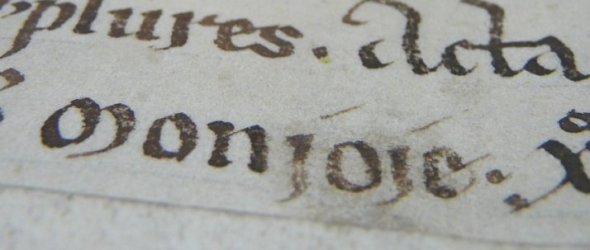 plures. Acta
Monjoie. x